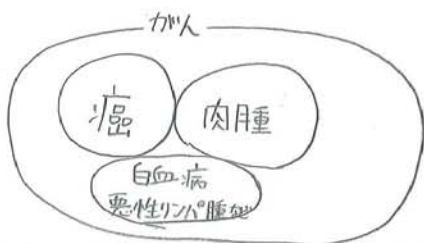 がん
癌
肉腫
白血病
悪性リンパ腫など